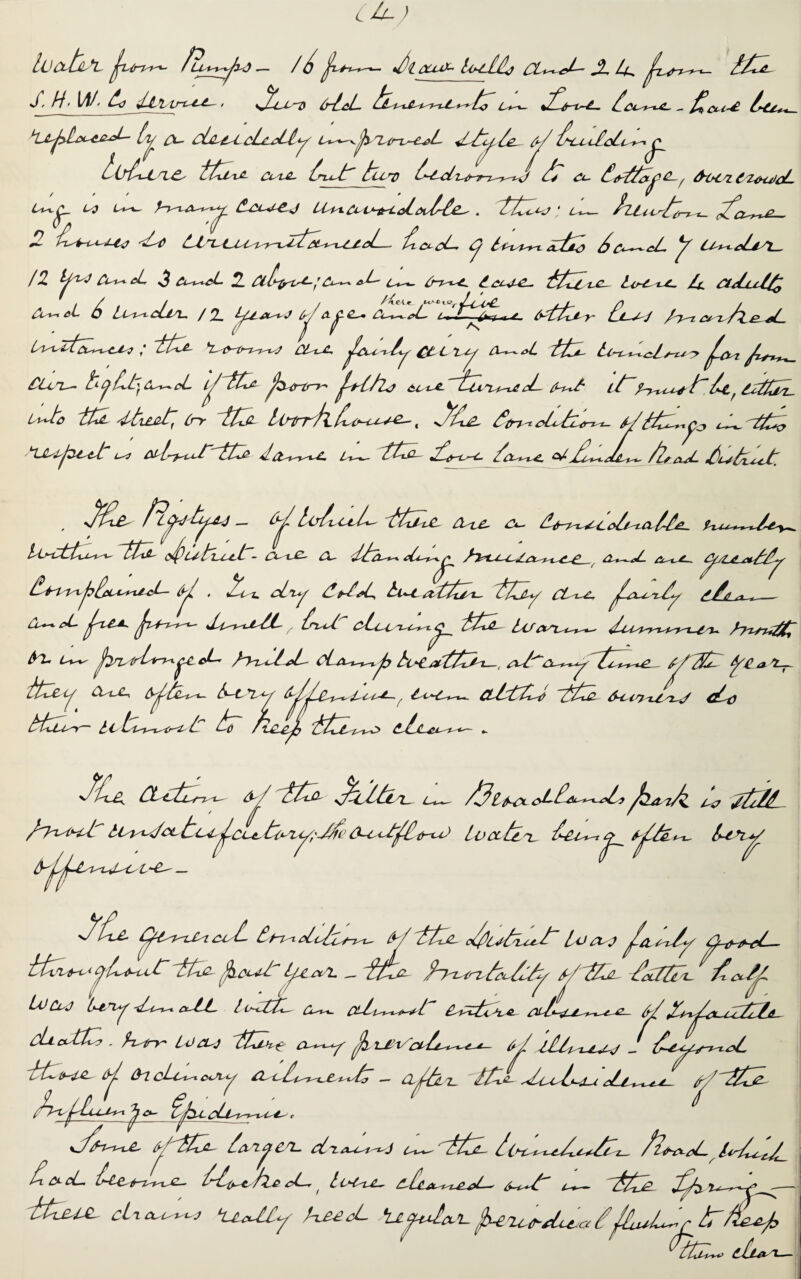 (4)
Water from Pumps — 16 from Draw Wells and 24 from the
S. H. W. Co Service. Two old tenements in Love Lane - have been
replaced by a decidedly improved style of building
Where there are but two bedrooms to a Cottage, overcrowd
ing is in many cases unavoidable. Thus: in Newton Lane
2 houses so circumstanced had 9 inmates 6 and 7 under
12 yrs and 3 and 2 above; and in one case there were 4 adults
and 6 under 12 years of age. and there were five other less marked
instances; the rooms are fairly airy and the windows fair for
air light; and if the poor folks are turned out it must be, either
into the street, or the Workhouse. The Condition of things in this
respect is about the same in the Love lane & Linden Road District.
The Pigstyes — of which there are a considerable number
within the District - are a standing nuisance, and are greatly
Complained of. In dry Cold, weather they are fairly clean
and free from smell, but during the warm summer months
or in prolonged mild damp weather, at any time of the year,
they are often very offensive, even altho the owners do
their utmost to keep them clean.
The action of the Filter in Broadlands park is still
most unsatisfactory; the outflow water being often very
offensive —
The general Condition of the District was fairly good
throughout the past year. — The Mortality of the latter half
was very small with an almost entire absence of Infantile
deaths. Nor was there any prevalence of illness - beyond
those of ordinary ailments - after the subsidence of the
Influenza Epidemic.
Some of the larger drains in the Winchester Road, which
had become blocked, were cleaned out in the Spring —
these drains really need regular periodical flushing to keep
them clear —